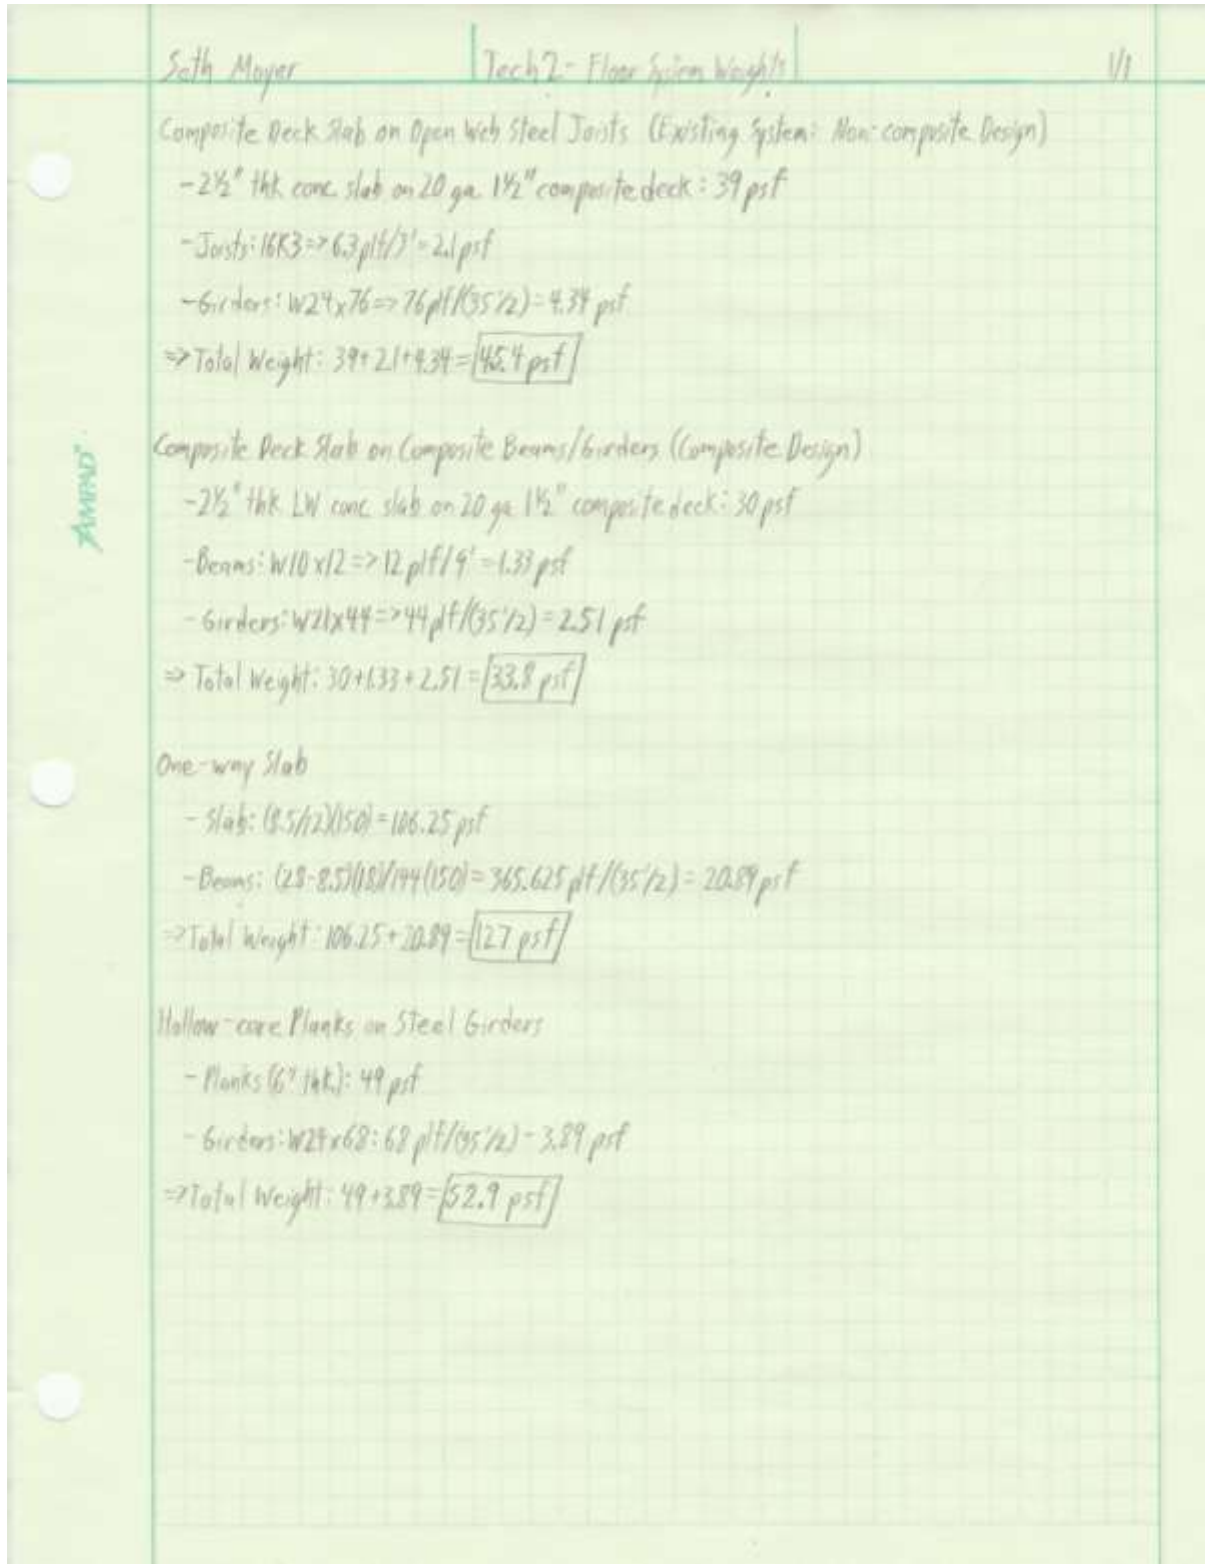 Seth Moyer Tech 2 - Floor System Weights 1/1
Composite Deck Slab on Open Web Steel Joists (Existing System: Non-composite Design)
-2½" thk conc slab on 20 ga 1½" composite deck: 39 psf
-Joists: 16K3 => 6.3 plf/3' = 2.1 psf
-Girders: W24x76 => 76 plf/(35'/2) = 4.34 psf
=> Total Weight: 39+2.1+4.34 = 45.4 psf
Composite Deck Slab on Composite Beams/Girders (Composite Design)
-2½" thk LW conc slab on 20 ga 1½" composite deck: 30 psf
AMPAD
-Beams: W10x12 => 12 plf/9' = 1.33 psf
-Girders: W21x44 => 44 plf/(35'/2) = 2.51 psf
=> Total Weight: 30+1.33+2.51 = 33.8 psf
One-way Slab
- Slab: (8.5/12)(150) = 106.25 psf
-Beams: (28-8.5)(18)/144(150) = 365.625 plf/(35'/2) = 20.89 psf
=> Total Weight: 106.25+20.89 = 127 psf
Hollow-core Planks on Steel Girders
- Planks (6" thk.): 49 psf
- Girders: W24x68: 68 plf/(35'/2) = 3.89 psf
=> Total Weight: 49+3.89 = 52.9 psf